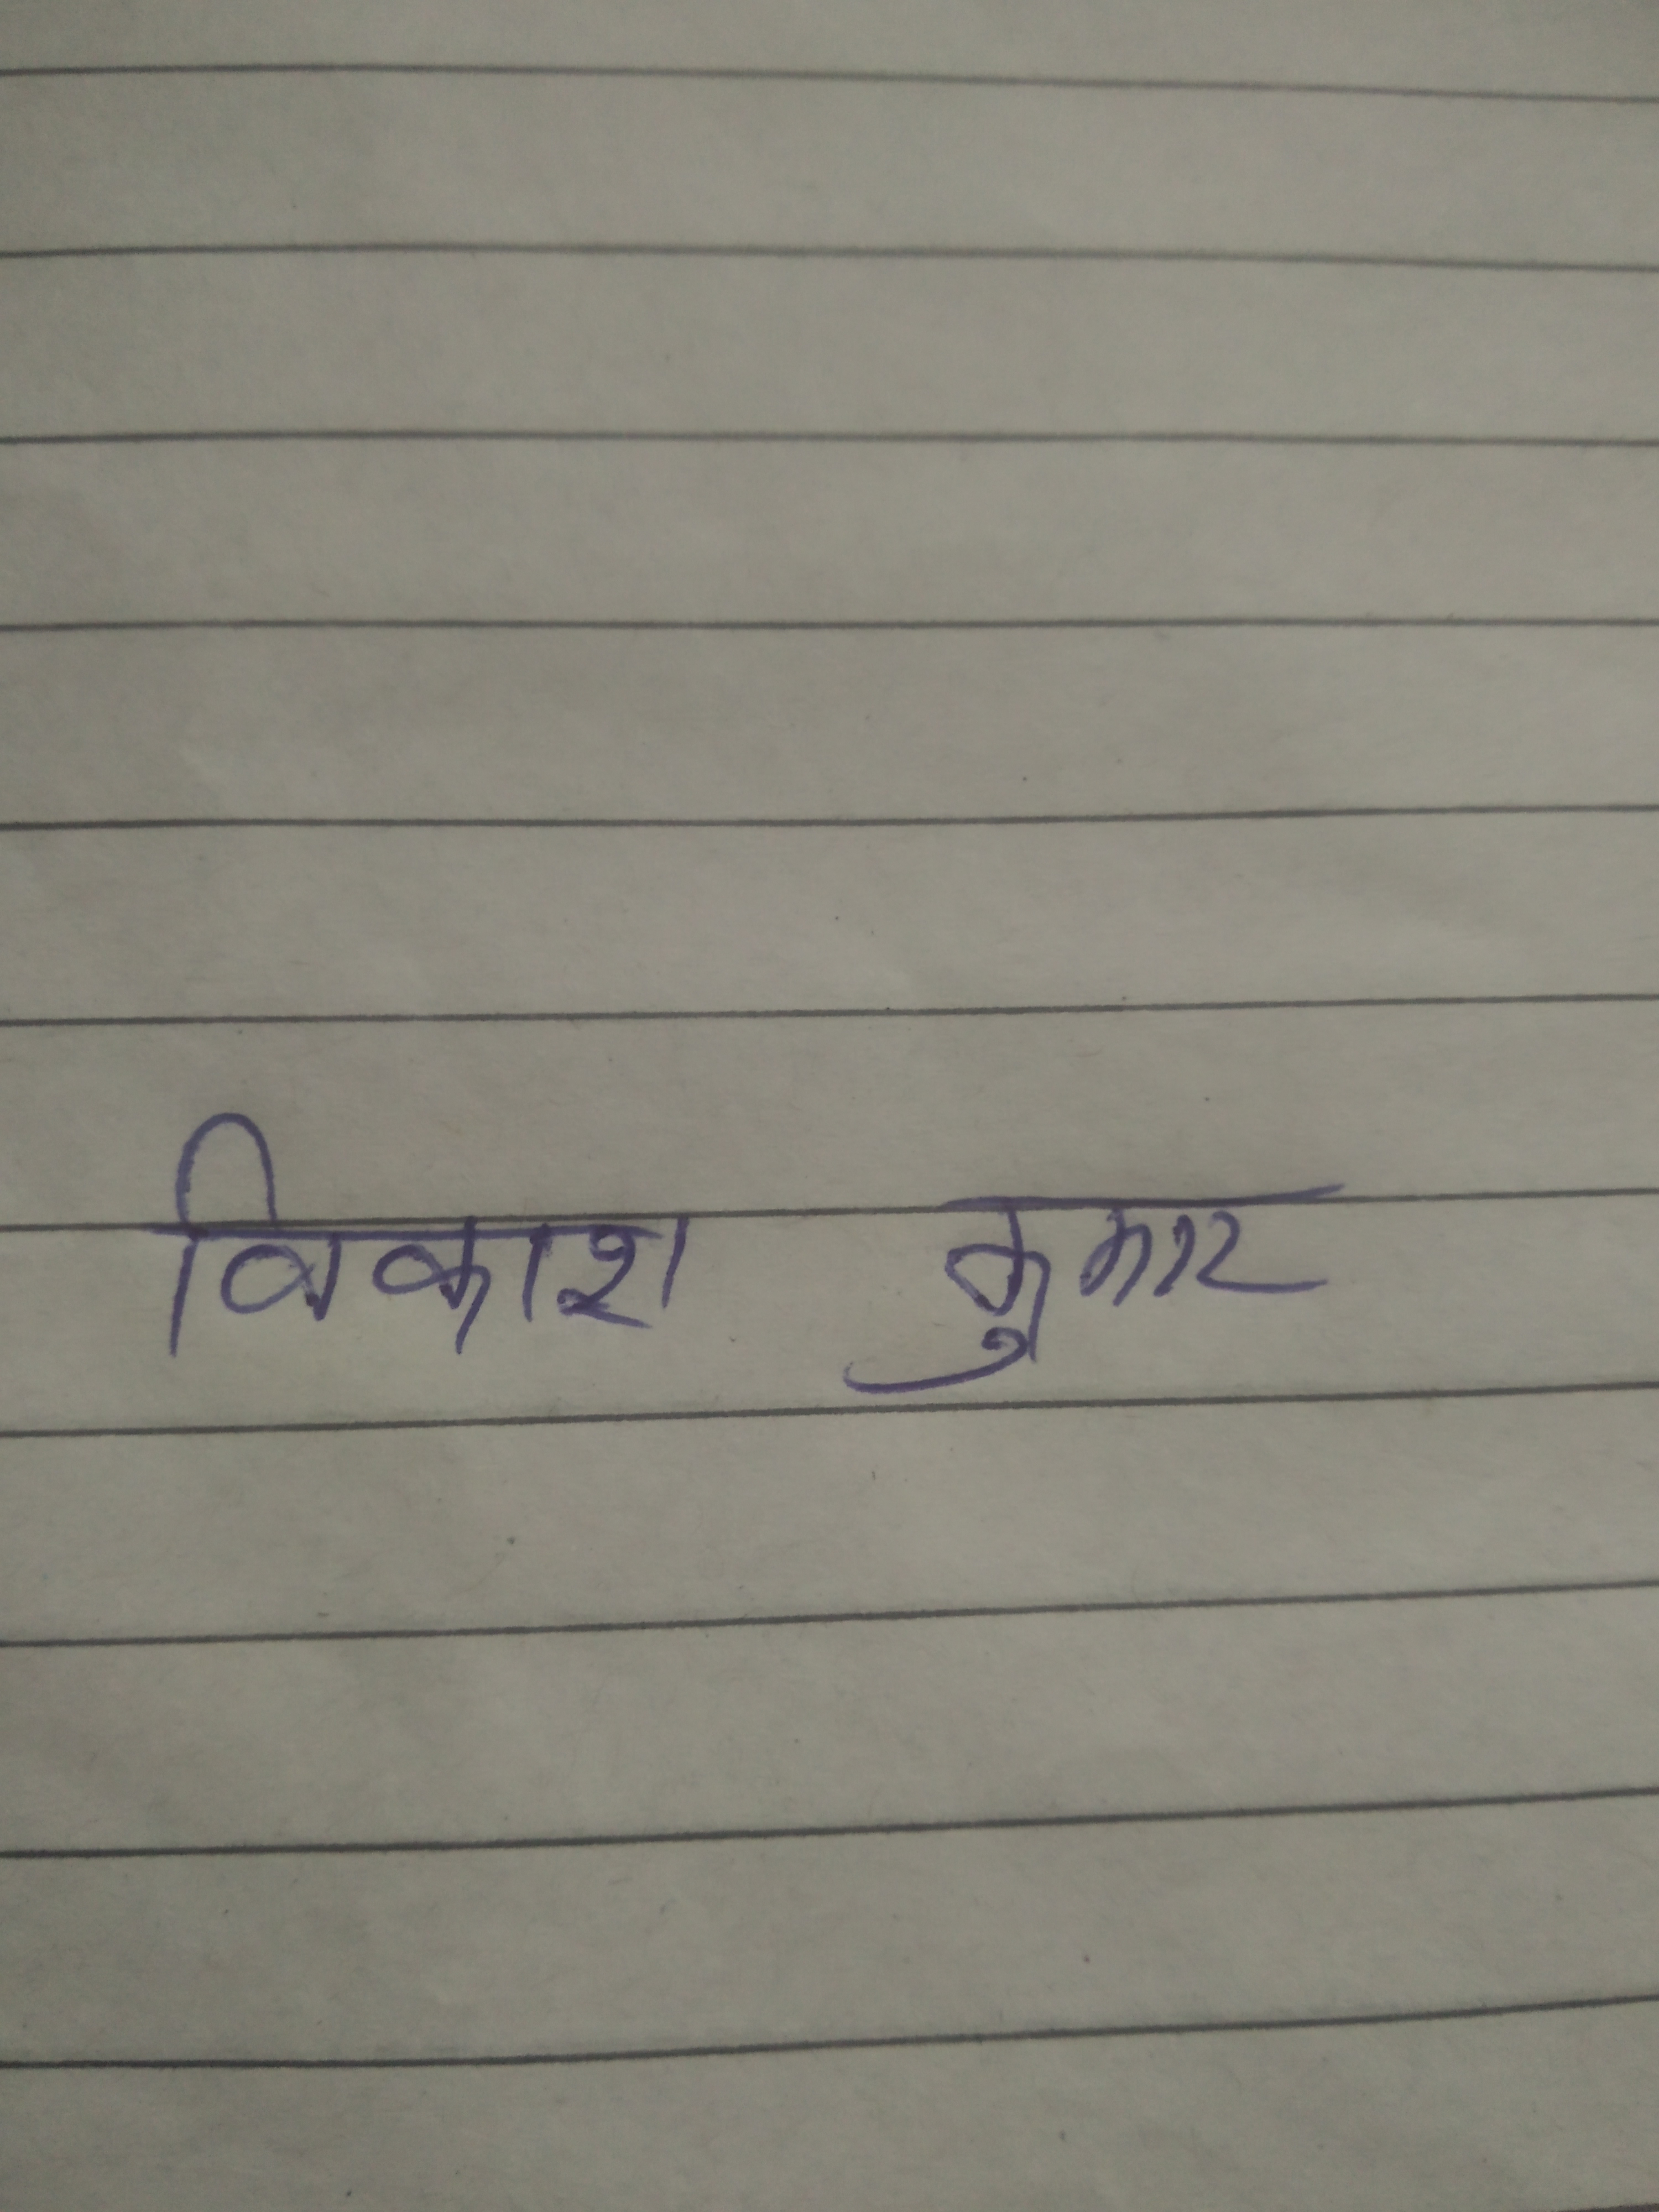 विकाश कुमार